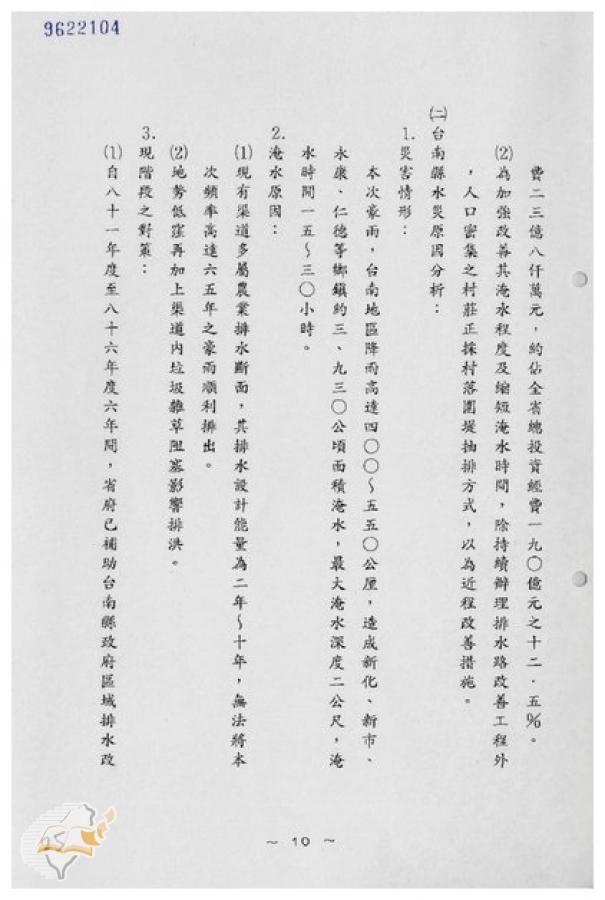 9622104
費二三億八仟萬元，約佔全省總投資經費一九〇億元之十二．五%。
⑵為加強改善其淹水程度及縮短淹水時間，除持續辦理排水路改善工程外
，人口密集之村莊正採村落圍堤抽排方式，以為近程改善措施。
㈡台南縣水災原因分析：
1.災害情形：
本次豪雨，台南地區降雨高達四〇〇～五五〇公厘，造成新化、新市、
永康、仁德等鄉鎮約三、九三〇公頃面積淹水，最大淹水深度二公尺，淹
水時間一五～三〇小時。
2.淹水原因：
⑴現有渠道多屬農業排水斷面，其排水設計能量為二年～十年，無法將本
次頻率高達六五年之豪雨順利排出。
⑵地勢低窪再加上渠道內垃圾雜草阻塞影響排洪。
3.現階段之對策：
⑴自八十一年度至八十六年度六年間，省府已補助台南縣政府區域排水改
～ 10 ～